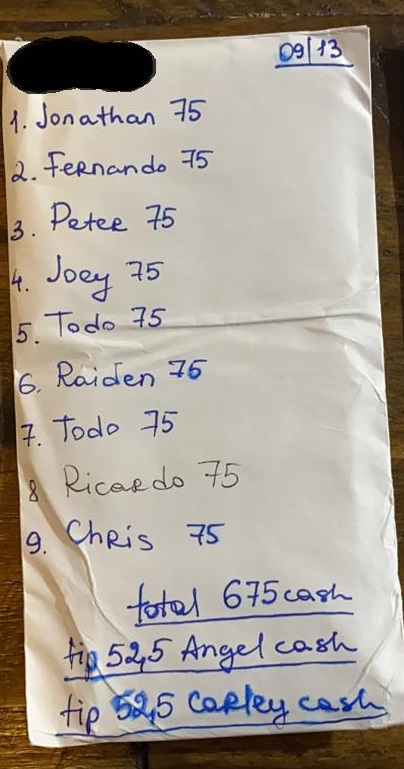 09/13
1. Jonathan 75
2. Fernando 75
3. Peter 75
4. Joey 75
5. Todo 75
6. Raiden 75
7. Todo 75
8 Ricardo 75
9. Chris 75
total 675 cash
tip 52,5 Angel cash
tip 52,5 Carley cash